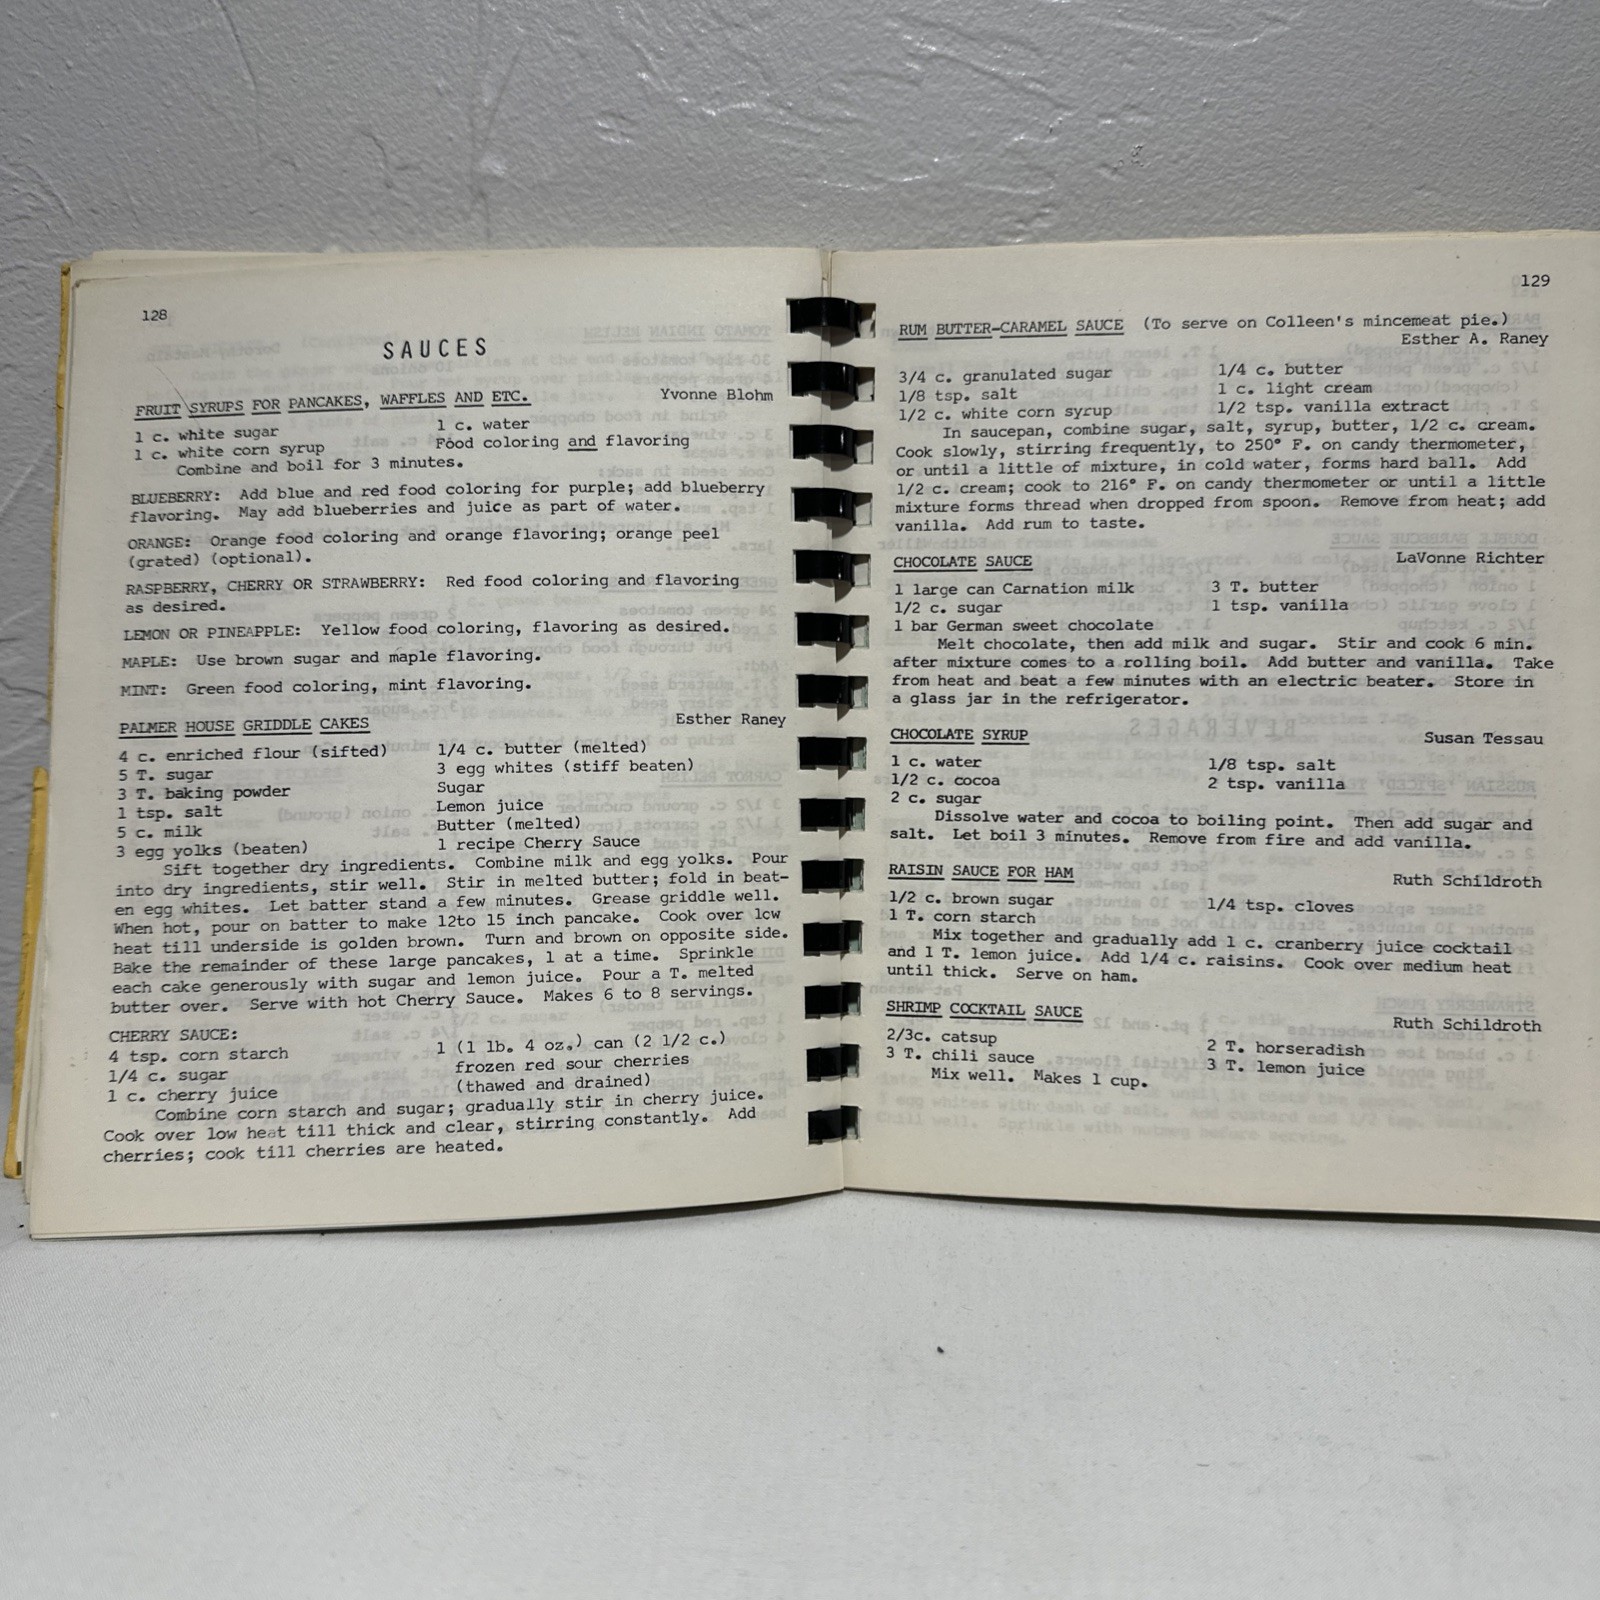 128
SAUCES
FRUIT SYRUPS FOR PANCAKES, WAFFLES AND ETC. Yvonne Blohm
1 c. white sugar 1 c. water
1 c. white corn syrup Food coloring and flavoring
Combine and boil for 3 minutes.
BLUEBERRY: Add blue and red food coloring for purple; add blueberry
flavoring. May add blueberries and juice as part of water.
ORANGE: Orange food coloring and orange flavoring; orange peel
(grated) (optional).
RASPBERRY, CHERRY OR STRAWBERRY: Red food coloring and flavoring
as desired.
LEMON OR PINEAPPLE: Yellow food coloring, flavoring as desired.
MAPLE: Use brown sugar and maple flavoring.
MINT: Green food coloring, mint flavoring.
PALMER HOUSE GRIDDLE CAKES Esther Raney
4 c. enriched flour (sifted) 1/4 c. butter (melted)
5 T. sugar 3 egg whites (stiff beaten)
3 T. baking powder Sugar
1 tsp. salt Lemon juice
5 c. milk Butter (melted)
3 egg yolks (beaten) 1 recipe Cherry Sauce
Sift together dry ingredients. Combine milk and egg yolks. Pour
into dry ingredients, stir well. Stir in melted butter; fold in beat-
en egg whites. Let batter stand a few minutes. Grease griddle well.
When hot, pour on batter to make 12to 15 inch pancake. Cook over lcw
heat till underside is golden brown. Turn and brown on opposite side.
Bake the remainder of these large pancakes, 1 at a time. Sprinkle
each cake generously with sugar and lemon juice. Pour a T. melted
butter over. Serve with hot Cherry Sauce. Makes 6 to 8 servings.
CHERRY SAUCE:
4 tsp. corn starch 1 (1 lb. 4 oz.) can (2 1/2 c.)
1/4 c. sugar frozen red sour cherries
1 c. cherry juice (thawed and drained)
Combine corn starch and sugar; gradually stir in cherry juice.
Cook over low heat till thick and clear, stirring constantly. Add
cherries; cook till cherries are heated.
129
RUM BUTTER-CARAMEL SAUCE (To serve on Colleen's mincemeat pie.)
Esther A. Raney
3/4 c. granulated sugar 1/4 c. butter
1/8 tsp. salt 1 c. light cream
1/2 c. white corn syrup 1/2 tsp. vanilla extract
In saucepan, combine sugar, salt, syrup, butter, 1/2 c. cream.
Cook slowly, stirring frequently, to 250° F. on candy thermometer,
or until a little of mixture, in cold water, forms hard ball. Add
1/2 c. cream; cook to 216° F. on candy thermometer or until a little
mixture forms thread when dropped from spoon. Remove from heat; add
vanilla. Add rum to taste.
CHOCOLATE SAUCE LaVonne Richter
1 large can Carnation milk 3 T. butter
1/2 c. sugar 1 tsp. vanilla
1 bar German sweet chocolate
Melt chocolate, then add milk and sugar. Stir and cook 6 min.
after mixture comes to a rolling boil. Add butter and vanilla. Take
from heat and beat a few minutes with an electric beater. Store in
a glass jar in the refrigerator.
CHOCOLATE SYRUP Susan Tessau
1 c. water 1/8 tsp. salt
1/2 c. cocoa 2 tsp. vanilla
2 c. sugar
Dissolve water and cocoa to boiling point. Then add sugar and
salt. Let boil 3 minutes. Remove from fire and add vanilla.
RAISIN SAUCE FOR HAM Ruth Schildroth
1/2 c. brown sugar 1/4 tsp. cloves
1 T. corn starch
Mix together and gradually add 1 c. cranberry juice cocktail
and 1 T. lemon juice. Add 1/4 c. raisins. Cook over medium heat
until thick. Serve on ham.
SHRIMP COCKTAIL SAUCE Ruth Schildroth
2/3c. catsup 2 T. horseradish
3 T. chili sauce 3 T. lemon juice
Mix well. Makes 1 cup.